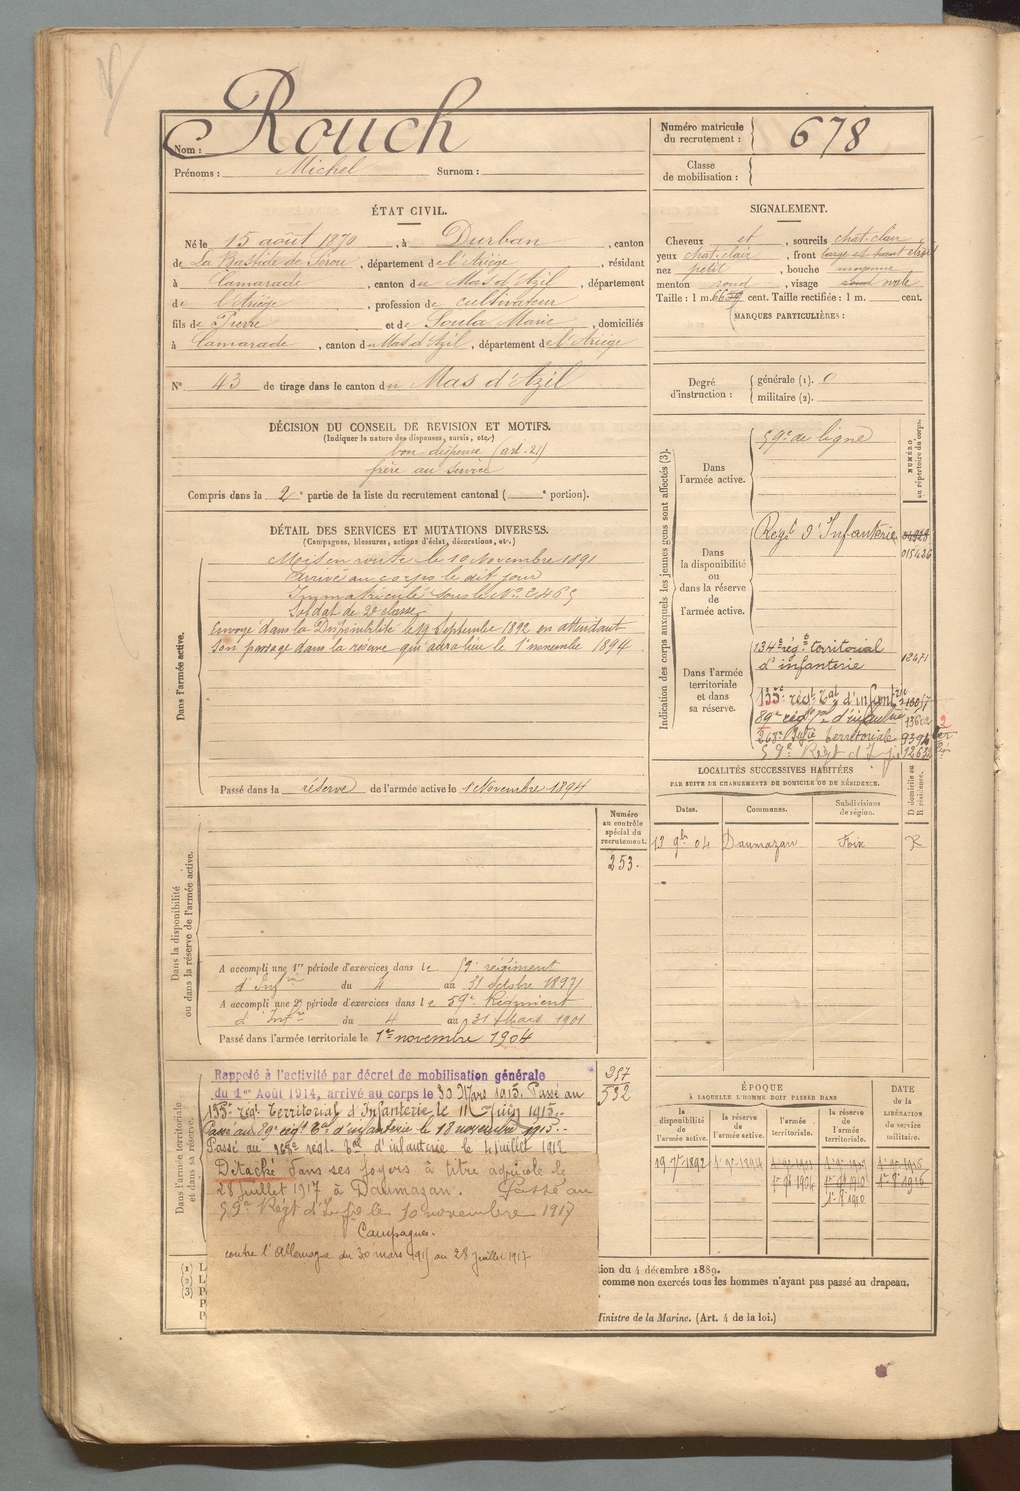 Nom : Rouch
Prénoms : Michel Surnom :
Numéro matricule du recrutement : 678
Classe de mobilisation :
ÉTAT CIVIL.
Né le 15 août 1870, à Durban, canton
de La Bastide de Sérou, département de l'Ariège, résidant
à Camarade, canton du Mas d'Azil, département
de l'Ariège, profession de cultivateur
fils de Pierre et de Soula Marie, domiciliés
à Camarade, canton du Mas d'Azil, département de l'Ariège
N° 43 de tirage dans le canton du Mas d'Azil
SIGNALEMENT.
Cheveux et, sourcils chat. clair,
yeux chat. clair, front
nez petit, bouche moyenne
menton rond, visage rond ovale
Taille : 1 m. 66 cent. Taille rectifiée : 1 m. cent.
MARQUES PARTICULIÈRES :
Degré d'instruction : générale (1). 0
militaire (2).
DÉCISION DU CONSEIL DE REVISION ET MOTIFS.
(Indiquer la nature des dispenses, sursis, etc.)
bon dispensé (art. 21)
frère au service
Compris dans la 2e partie de la liste du recrutement cantonal ( e portion).
DÉTAIL DES SERVICES ET MUTATIONS DIVERSES.
(Campagnes, blessures, actions d'éclat, décorations, etc.)
Dans l'armée active.
Mis en route le 10 Novembre 1891
Arrivé au corps le dit jour
Immatriculé sous le No 2465
Soldat de 2e classe
Envoyé dans la Disponibilité le 19 Septembre 1892 en attendant
son passage dans la réserve qui aura lieu le 1er novembre 1894
Passé dans la réserve de l'armée active le 1 Novembre 1894
Indication des corps auxquels les jeunes gens sont affectés (3).
NUMÉRO au répertoire du corps.
Dans l'armée active.
59e de ligne
Dans la disponibilité ou dans la réserve de l'armée active.
Regt d'Infanterie
015426
Dans l'armée territoriale et dans sa réserve.
134e régt territorial
d'infanterie 12471
135e régt Tal d'infantrie
89e régt Tal d'infanterie
268e territoriale
59e Regt d'Inf
LOCALITÉS SUCCESSIVES HABITÉES
PAR SUITE DE CHANGEMENTS DE DOMICILE OU DE RÉSIDENCE.
Dates. Communes. Subdivisions de région. D domicile ou R résidence.
13 9bre 04 Daumazan Foix R
Dans la disponibilité ou dans la réserve de l'armée active.
Numéro au contrôle spécial du recrutement.
253.
A accompli une 1re période d'exercices dans le 59e régiment
d'Infrie du 4 au 31 octobre 1897
A accompli une 2e période d'exercices dans le 59e Régiment
d'Infrie du 4 au 31 Mars 1901
Passé dans l'armée territoriale le 1er novembre 1904
Dans l'armée territoriale et dans sa réserve.
957
532
Rappelé à l'activité par décret de mobilisation générale
du 1er Août 1914, arrivé au corps le 30 Mars 1915. Passé au
135e régt Territorial d'Infanterie, le 11 Juin 1915.
Passé au 89e régt Tal d'infanterie le 18 novembre 1915.
Passé au 268e régt Tal d'infanterie le 4 juillet 1917
Détaché dans ses foyers à titre agricole le
28 juillet 1917 à Daumazan. Passé au
59e Régt d'Inf le 10 novembre 1917
Campagnes.
contre l'Allemagne du 30 mars 1915 au 28 Juillet 1917
ÉPOQUE
À LAQUELLE L'HOMME DOIT PASSER DANS
la disponibilité de l'armée active. la réserve de l'armée active. l'armée territoriale. la réserve de l'armée territoriale.
DATE de la LIBÉRATION du service militaire.
19 7bre 1892
1er 9bre 1894
1er 9bre 1904
(1)
(2)
(3)
tion du 4 décembre 1889.
comme non exercés tous les hommes n'ayant pas passé au drapeau.
Ministre de la Marine. (Art. 4 de la loi.)